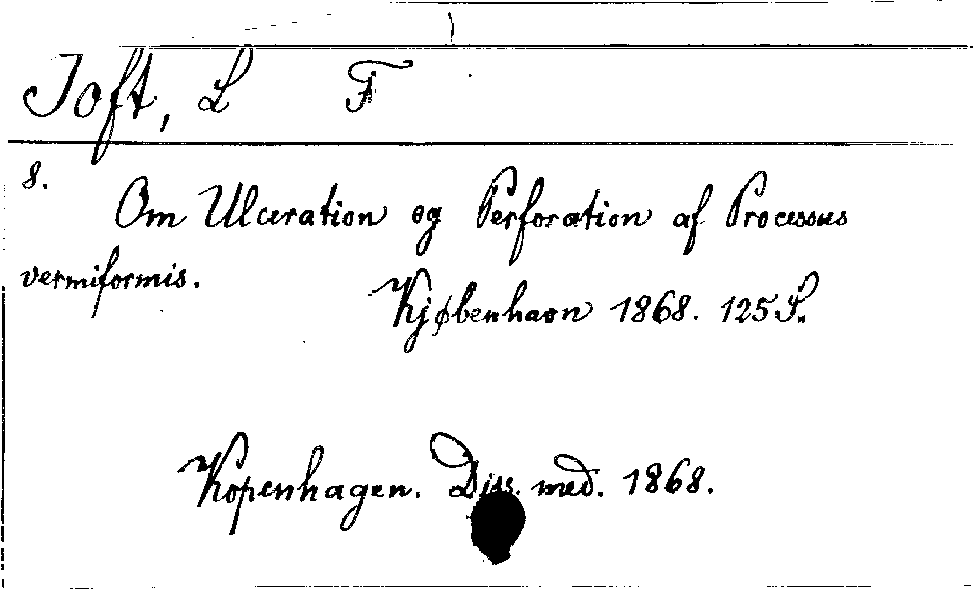 Toft, L F
8.
Om Ulceration og Perforation af Processus
vermiformis.
Kjøbenhavn 1868. 125 S.
Kopenhagen. Diss. med. 1868.